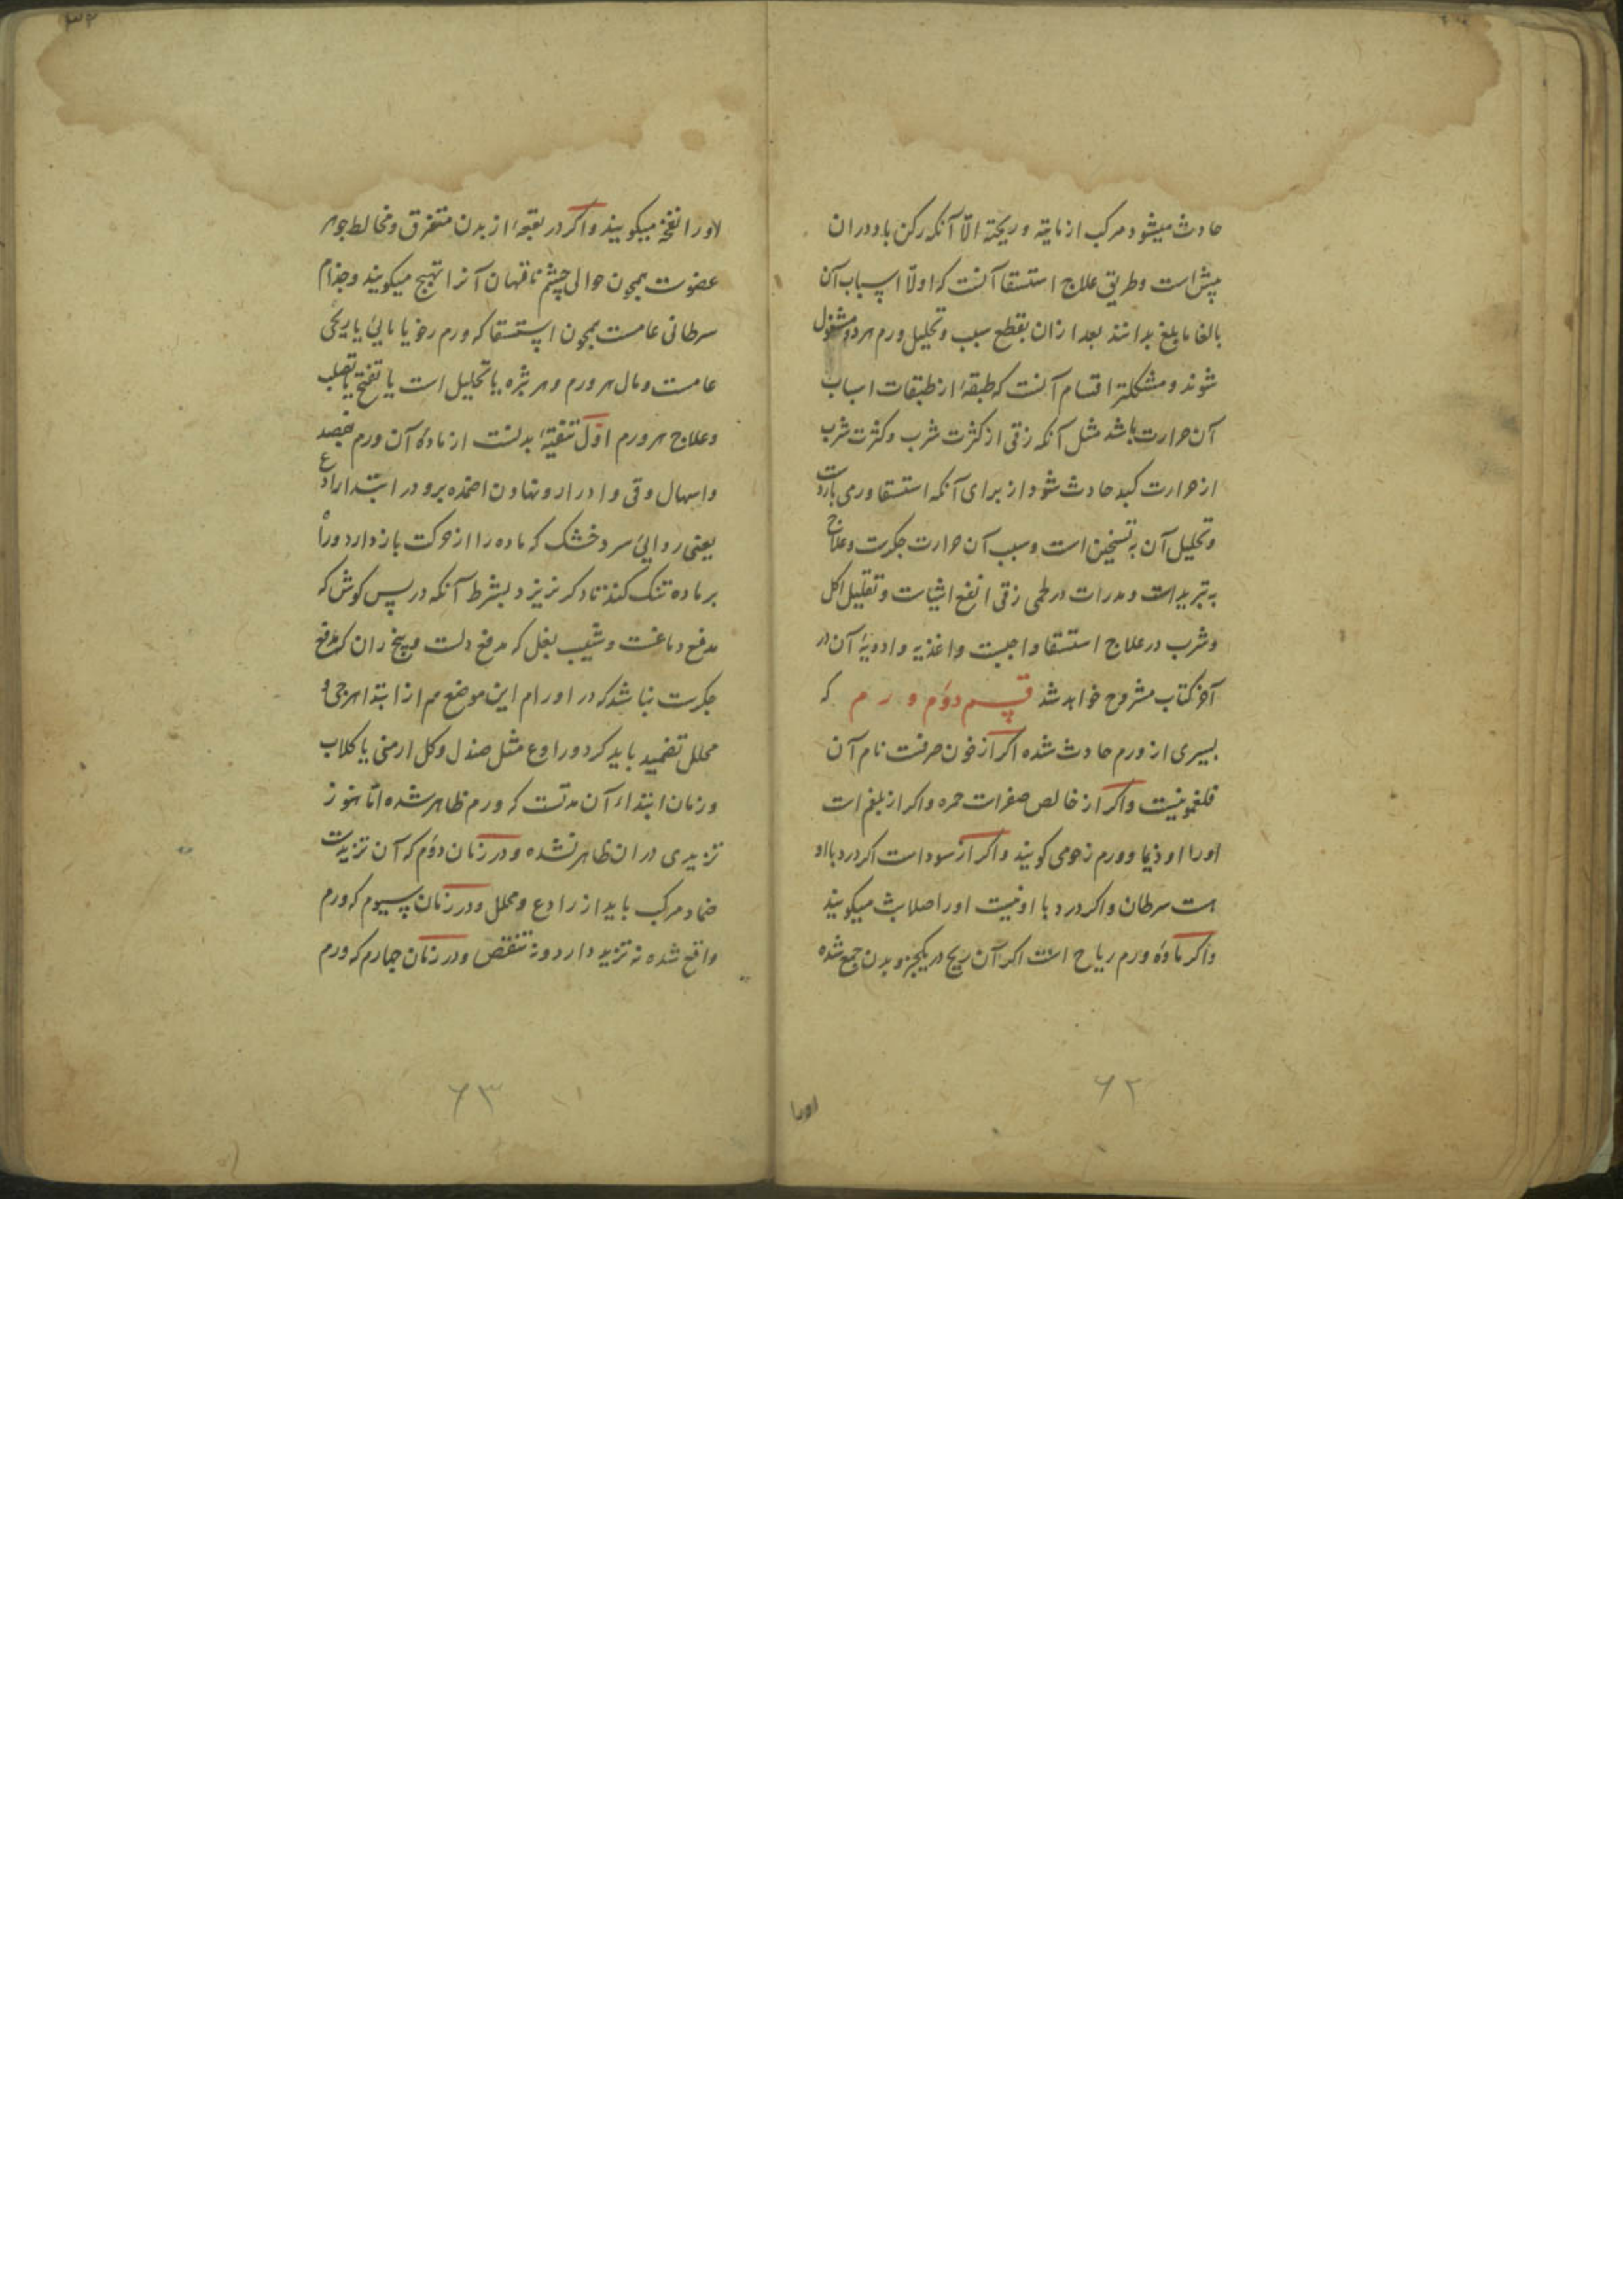 حادث میشود مرکب از مایته و ریحته الّا آنکه رکن باد در ان
پیش است و طریق علاج استسقا آنست که اولّا اسباب آن
بالغا مابلغ بدانند بعد ازان بقطع سبب و تحلیل ورم هر دو مشغول
شوند و مشکلتر اقسام آنست که طبقهٔ از طبقات اسباب
آن حرارت باشد مثل آنکه زقی از کثرت شرب و کثرت شرب
از حرارت کبد حادث شود از برای آنکه استسقا ورمی باردست
و تحلیل آن به تسخین است و سبب آن حرارت جگرست و علاج
به تبرید است و مدرات در طمی زقی انفع اشیاست و تقلیل اکل
و شرب در علاج استسقا واجبست و اغذیه و ادویهٔ آن در
آخر کتاب مشروح خواهد شد قسم دوّم ورم که
بسیری از ورم حادث شده اکر از خون صرفست نام آن
فلغمونیست واکر از خالص صفراست حمره واکر از بلغم است
اورا اوذیما و ورم زحومی کویند واکر از سوداست اکر درد با او
هست سرطان واکر درد با او نیست اورا صلابت میکویند
واکر مادهٔ ورم ریاح است اکر آن ریح در یکجزو بدن جمع شده
اورا
۶۲
اورا نفخه میکویند واکر در بقعهٔ از بدن متفرق و مخالط جوهر
عضوست همچون حوالی چشم ناقهان آنرا تهبج میکویند و جذام
سرطانی عامست همچون استسقا که ورم رخو یا مایئ یا ریحی
عامست و مال هر ورم و هر بثره یا تحلیل است یا تفتح یا تصلب
و علاج هر ورم اوّل تنقیهٔ بدنست از مادهٔ آن ورم بفصد
و اسهال و قی و ادرار و نهادن اضمده برو در ابتدا رادع
یعنی دوایئ سرد خشک که ماده را از حرکت باز دارد و راه
بر ماده تنک کند تا دکر نریزد بشرط آنکه در پس کوش که
مدفع دماغست و شیب بغل که مدفع دلست و بیخ ران که مدفع
جکرست نباشد که در اورام این موضع هم از ابتدا مرخی و
محلل تضمید باید کرد و رادع مثل صندل و کل ارمنی یا کلاب
و زمان ابتداء آن مدتست که ورم ظاهر شده امّا هنوز
تزیدی در ان ظاهر نشده و در زمان دوّم که آن تزیدست
ضماد مرکب باید از رادع و محلل و در زمان سیوم که ورم
واقع شده نه تزید دارد و نه تنقص و در زمان چهارم که ورم
۶۳